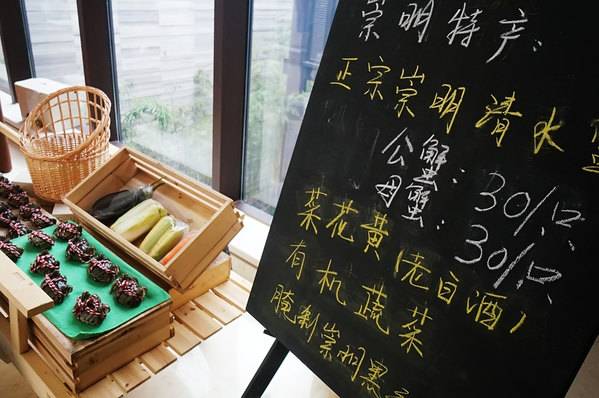 崇明特产:
正宗崇明清水
公蟹: 30/只
母蟹: 30/只
菜花黄(老白酒)
有机蔬菜
腌制崇明